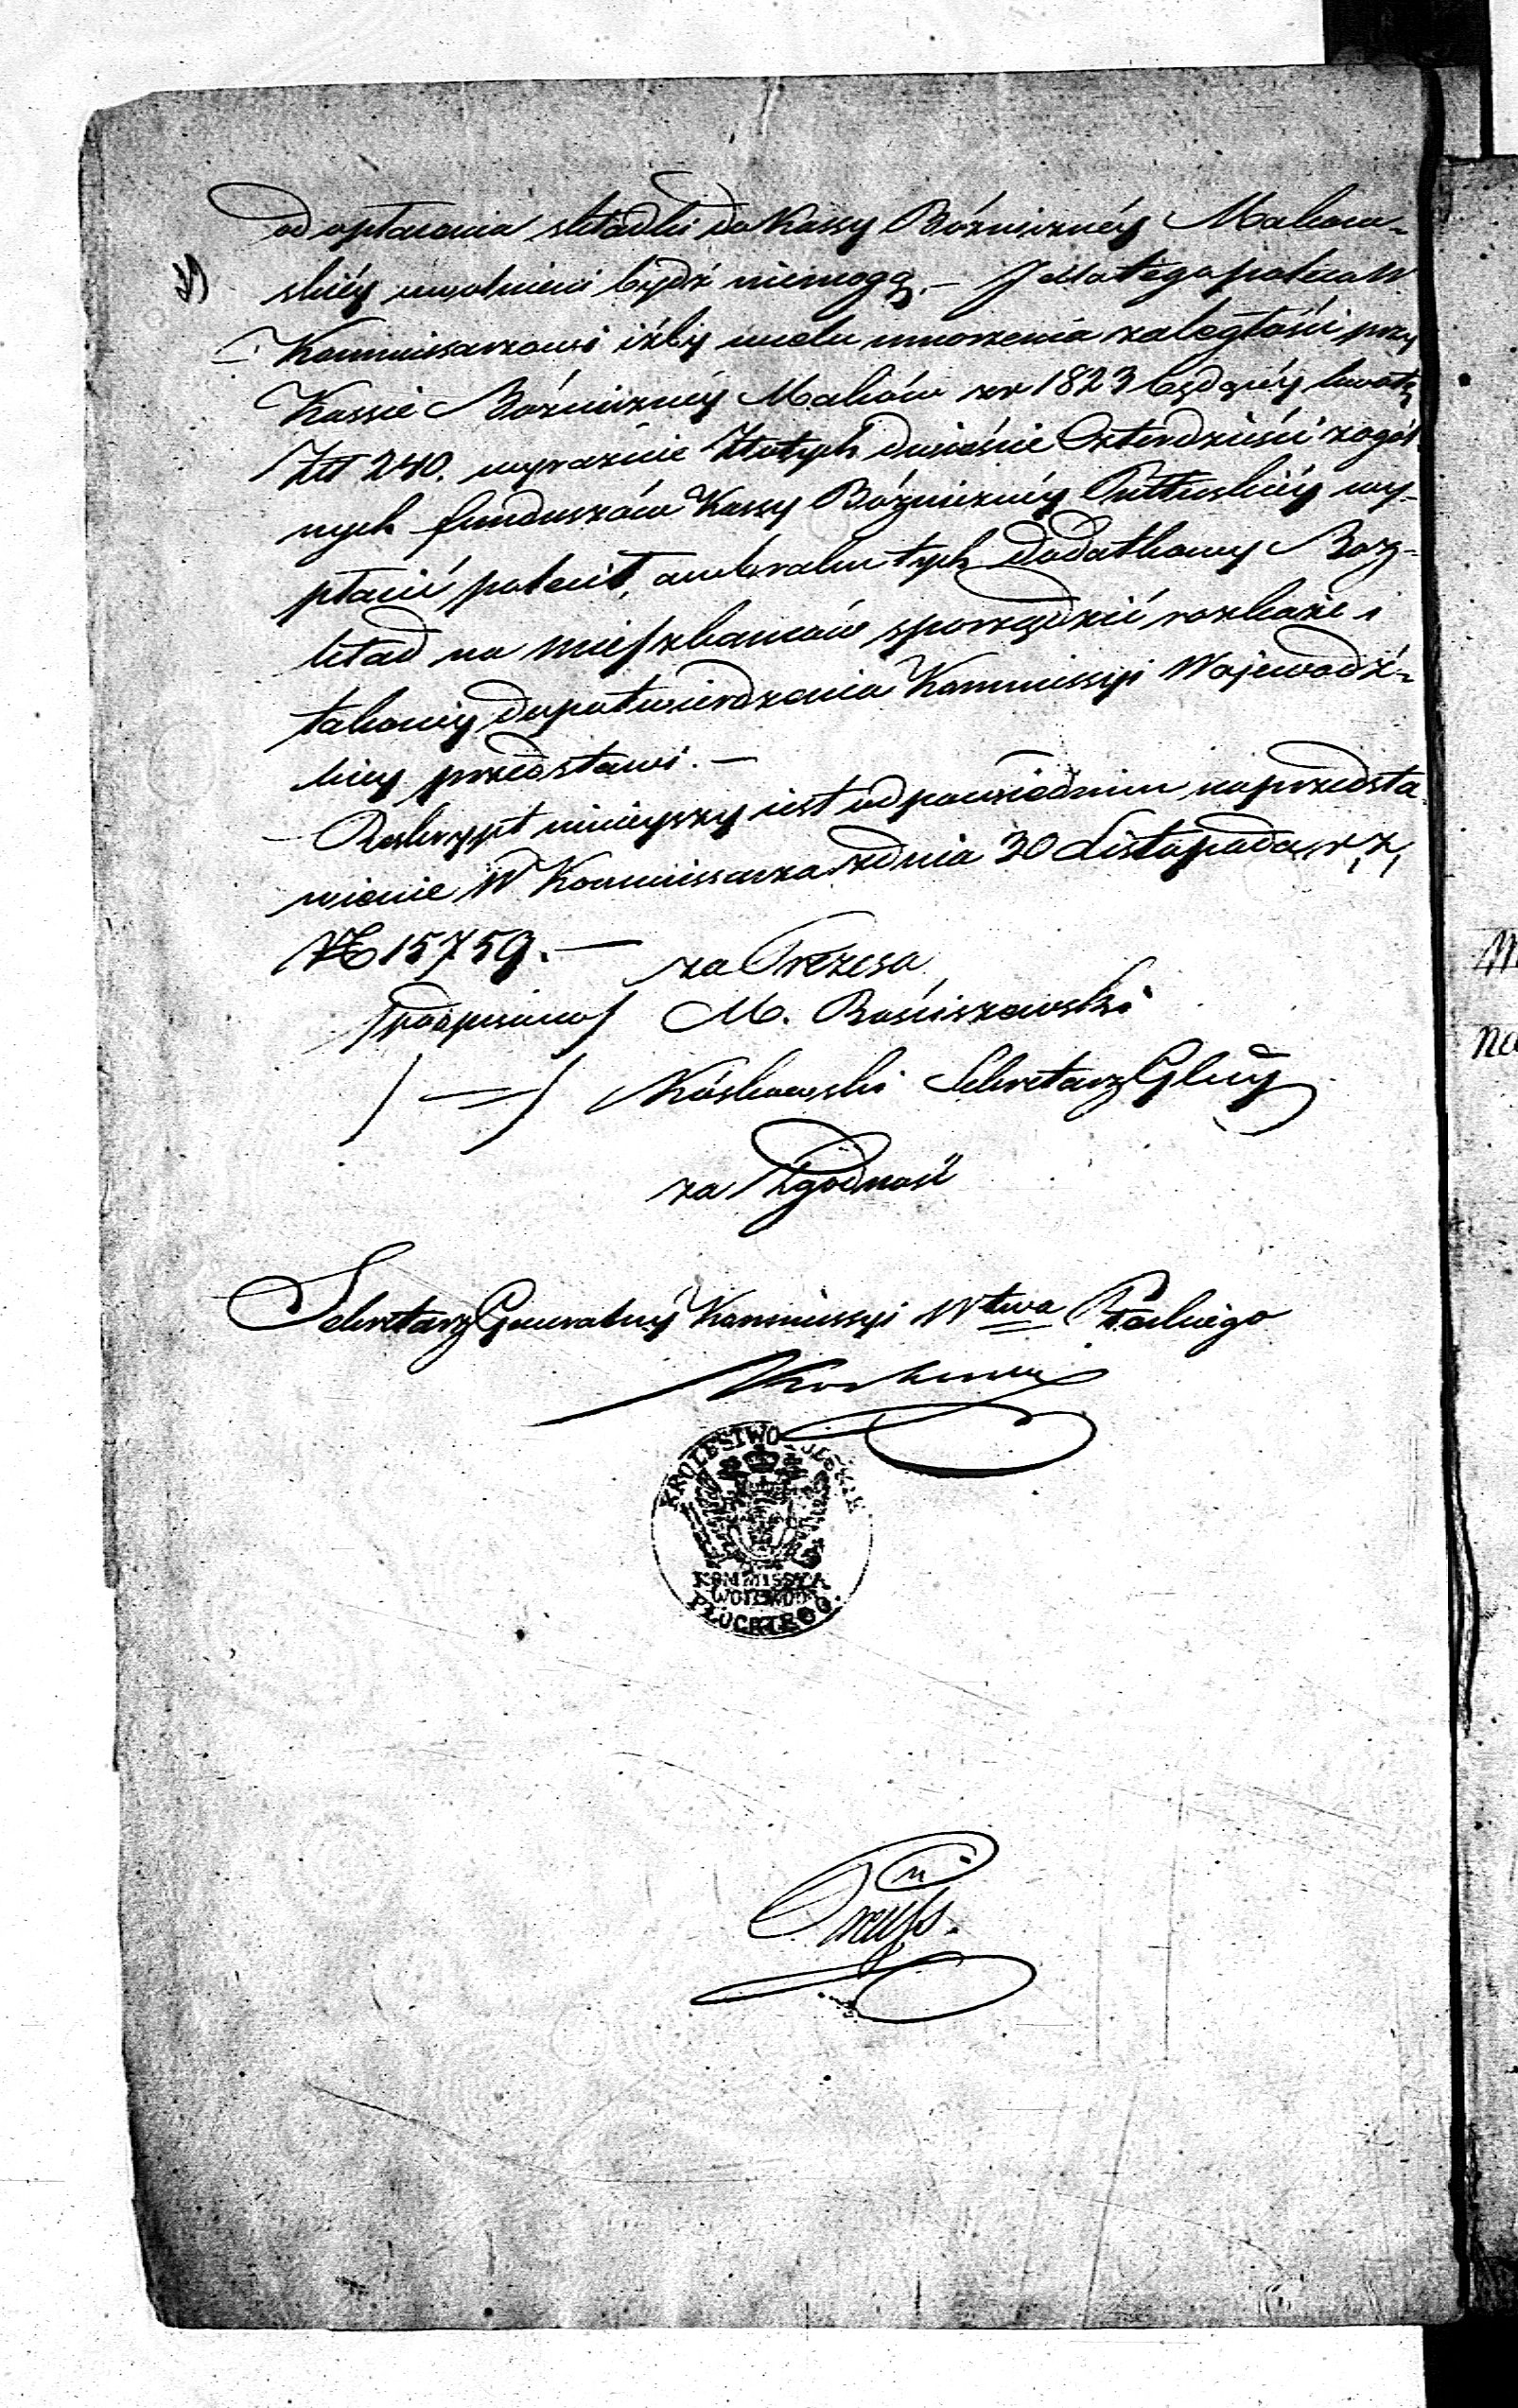 od opłacania składki do Kassy Bóżniczney Makow-
skiéy uwolnieni bydź niemogą. — J dla tego poleca W
Kommissarzowi iżby wcelu umorzenia zaległości przy
Kassie Bóżniczney Maków zr 1823 będącéy kwotę
Złł 240. wyraźnie Złotych dwieście Czterdzieści zogól-
nych funduszów Kassy Bóżniczney Pułtuskiéy wy-
płacić polecił, a w braku tych dodatkowy Roz-
kład na mieszkańców sporządzić rozkaże i
takowy do potwierdzenia Kommissyi Wojewodz-
kiey przedstawi. —
— Reskrypt ninieyszy iest odpowiednim na przedsta-
wienie W Kommissarza zdnia 30 Listopada r. z.
№ 15759. — za Prezesa
/podpisano/ M. Rościszewski
/ — / Koskowski Sekretarz Glny
za Zgodność
Sekretarz Generalny Kommissyi Wtwa Płockiego
Koskowski
KROLESTWO POLSKIE
KOMMISSYA
WOIEWOD.
PŁOCKIEGO.
Preuss.